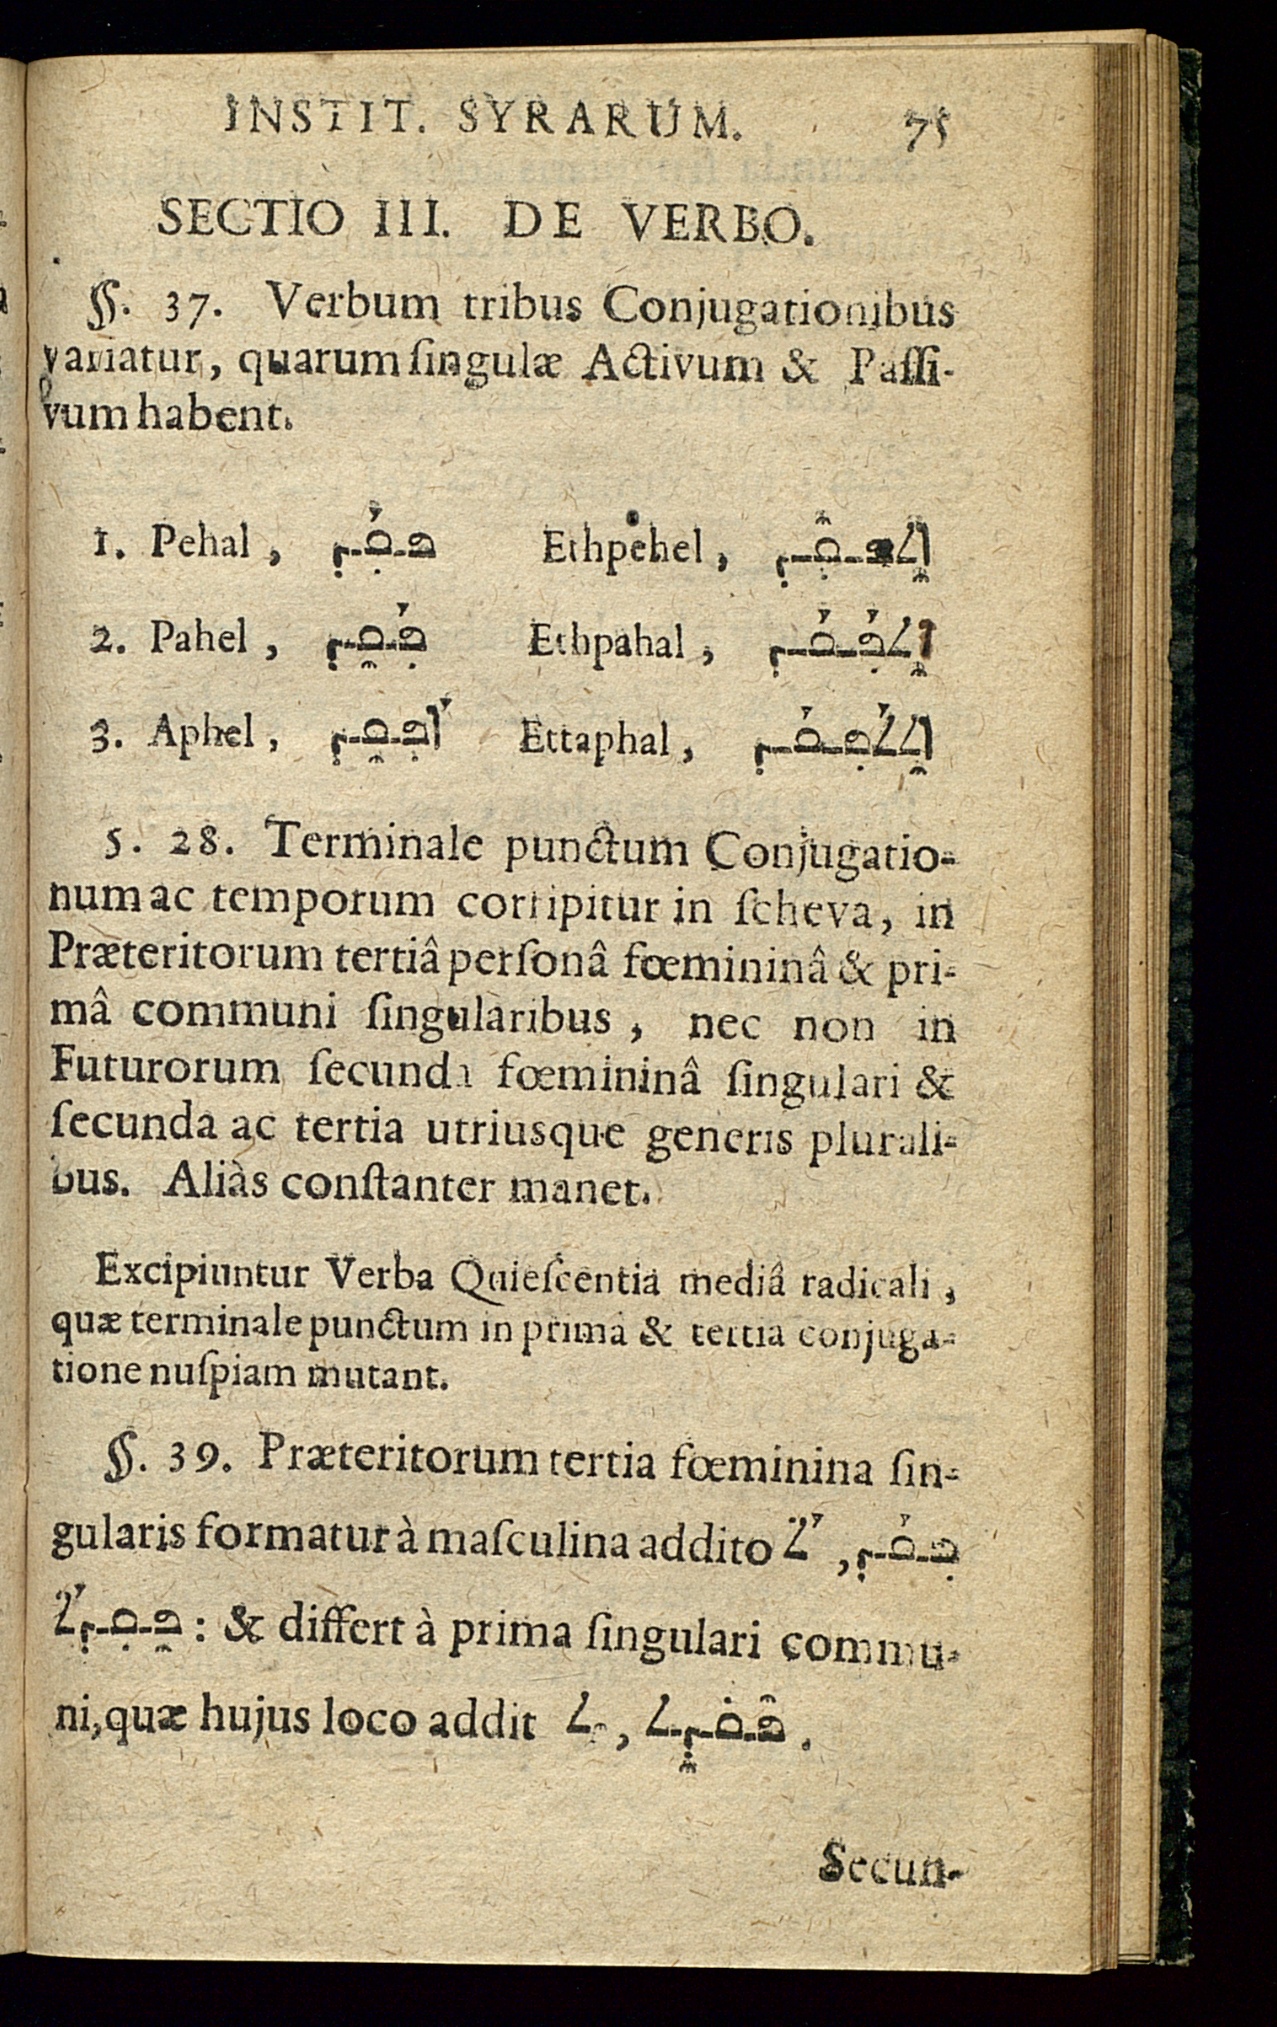 INSTIT. SYRARUM. 75
SECTIO III. DE VERBO.
§. 37. Verbum tribus Conjugationibus
variatur, quarum singulæ Activum & Passi-
vum habent.
1. Pehal, ܦܩܕ Ethpehel, ܐܬܦܩܕ
2. Pahel, ܦܩܕ Ethpahal, ܐܬܦܩܕ
3. Aphel, ܐܦܩܕ Ettaphal, ܐܬܬܦܩܕ
5. 28. Terminale punctum Conjugatio-
num ac temporum corripitur in scheva, in
Præteritorum tertiâ personâ fœmininâ & pri-
mâ communi singularibus, nec non in
Futurorum secunda fœmininâ singulari &
secunda ac tertia utriusque generis plurali-
bus. Aliàs constanter manet.
Excipiuntur Verba Quiescentia mediâ radicali,
quæ terminale punctum in prima & tertia conjuga-
tione nuspiam mutant.
§. 39. Præteritorum tertia fœminina sin-
gularis formatur à masculina addito ܬ, ܦܩܕ
ܦܩܕܬ : & differt à prima singulari commu-
ni, quæ hujus loco addit ܬ, ܦܩܕܬ.
Secun-